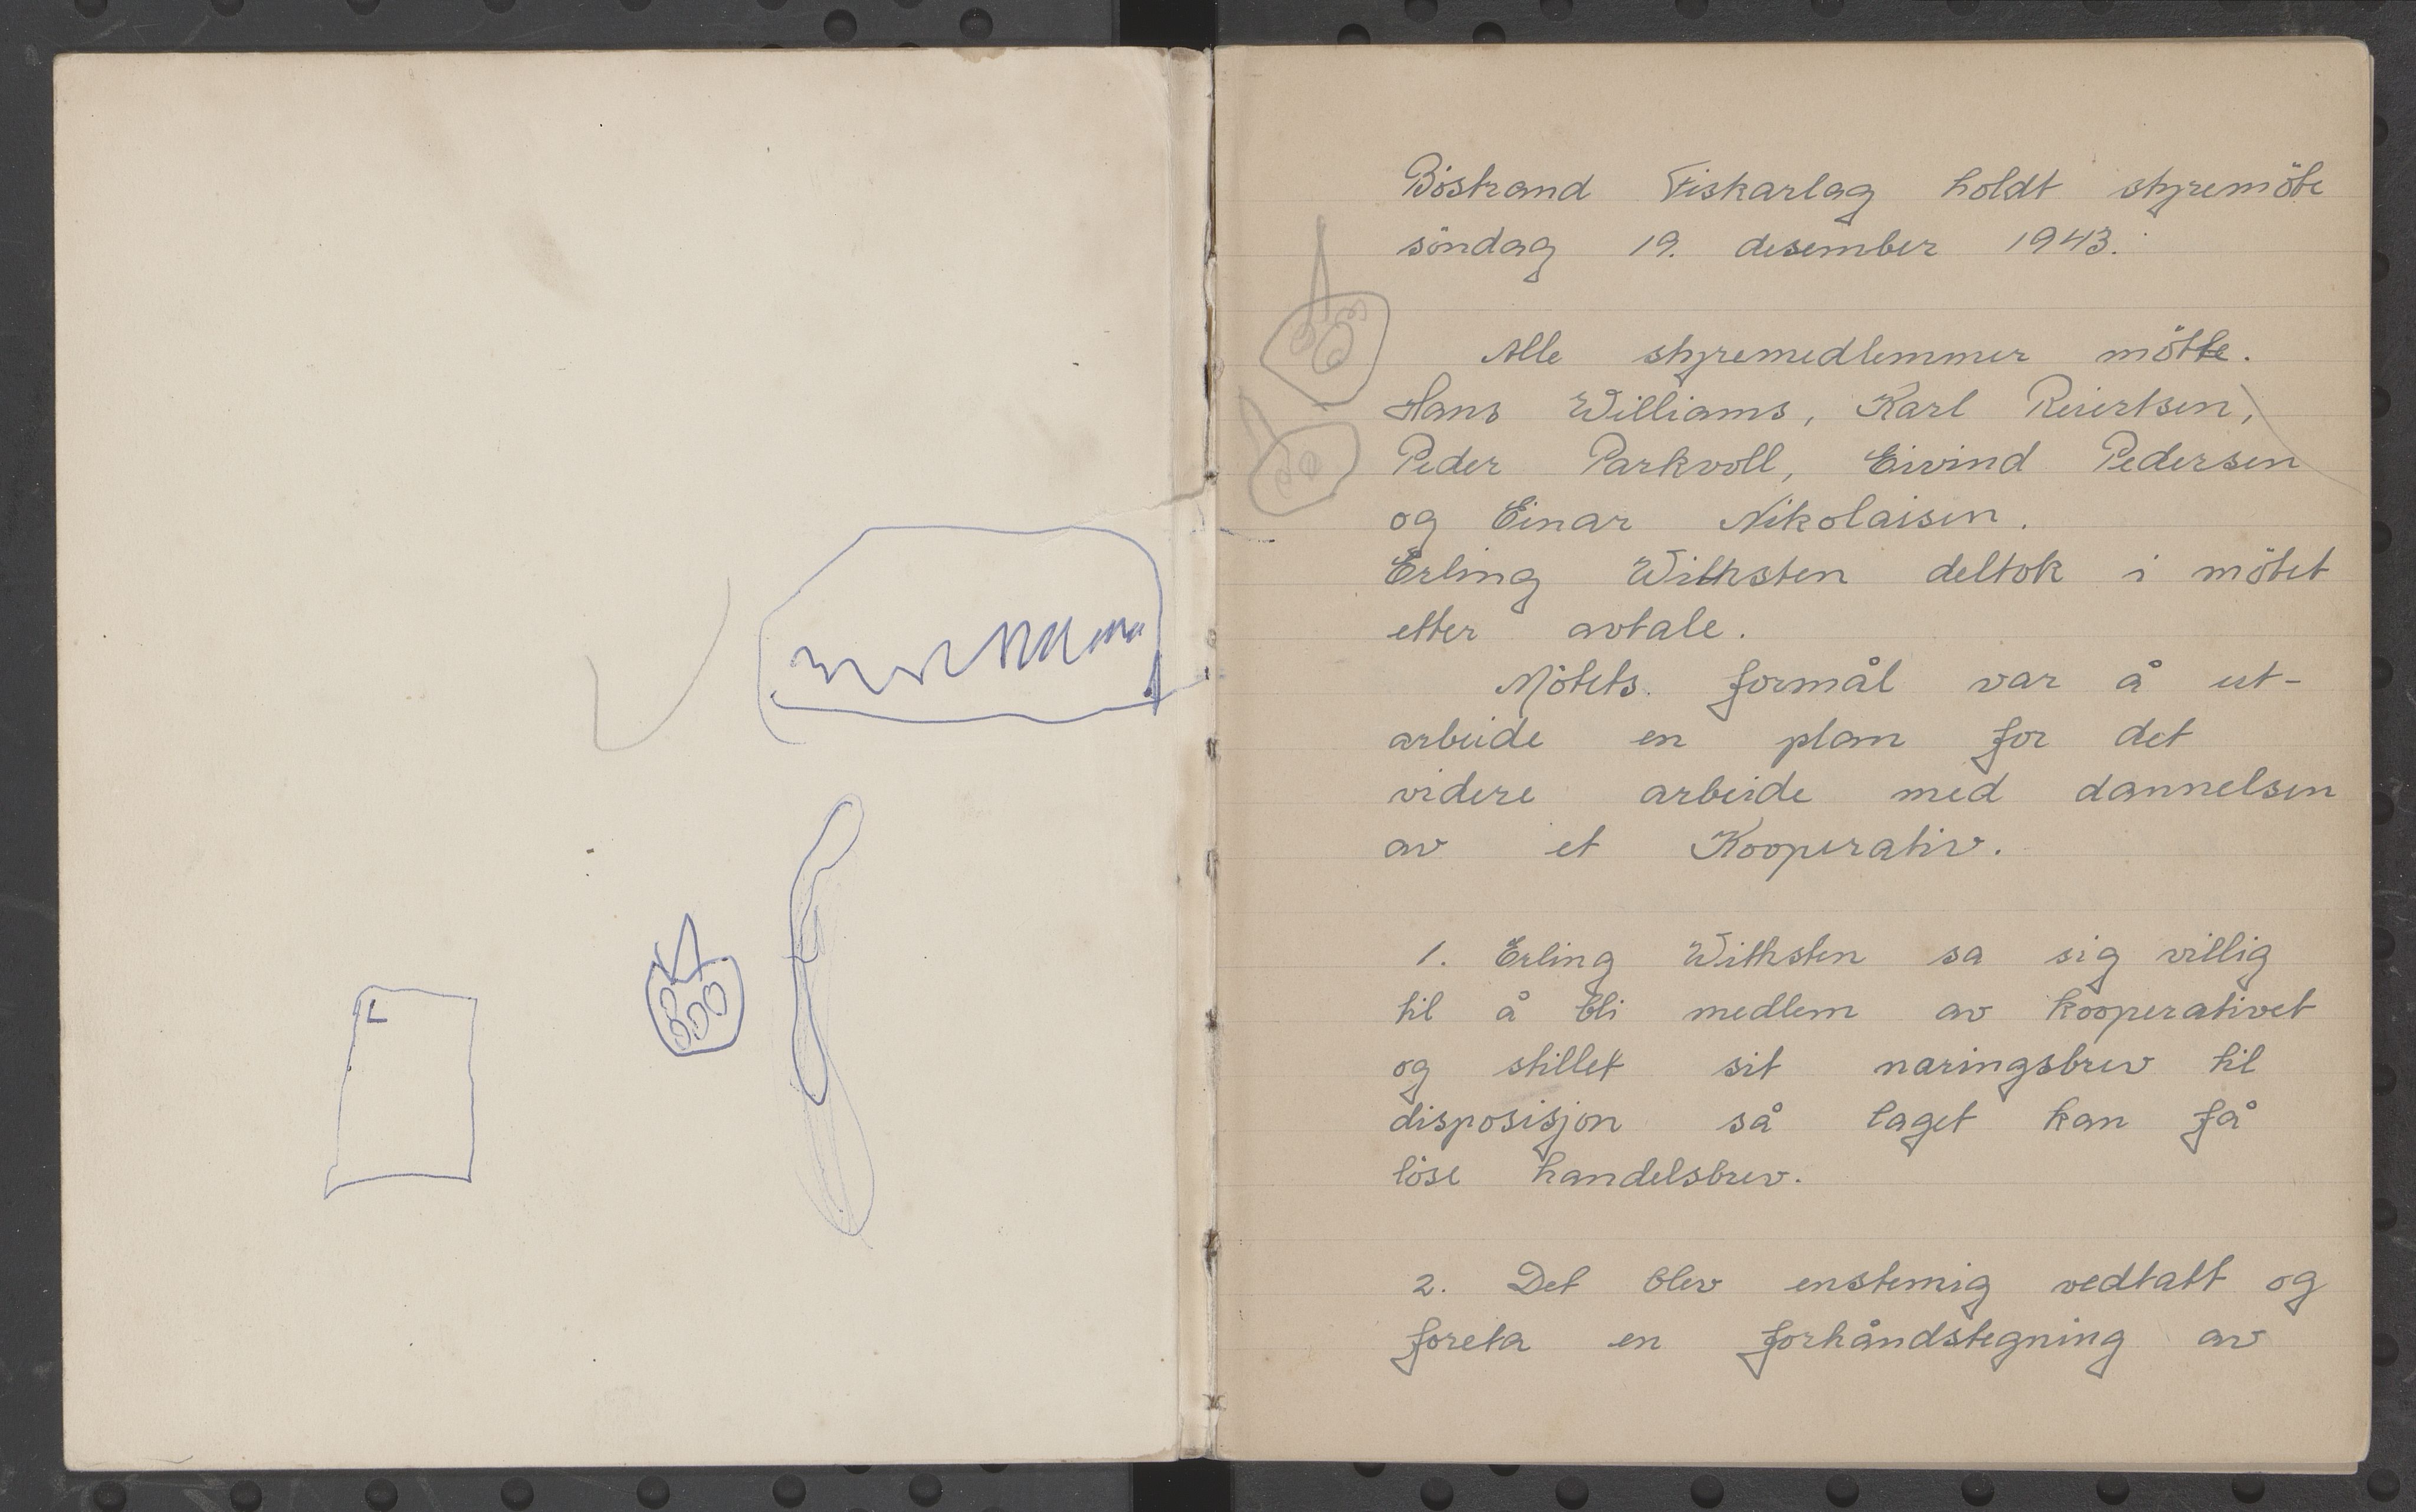 Böstrand Fiskarlag holdt styremöte
söndag 19. desember 1943.
Alle styremedlemmer mötte.
Hans Williams, Karl Reiertsen,
Peder Parkvoll, Eivind Pedersen
og Einar Nikolaisen.
Erling Withsten deltok i mötet
etter avtale.
Mötets formål var å ut-
arbeide en plan for det
videre arbeide med dannelsen
av et Kooperativ.
1. Erling Withsten sa sig villig
til å bli medlem av kooperativet
og stillet sit næringsbrev til
disposisjon så laget kan få
löse handelsbrev.
2. Det blev enstemig vedtatt og
foreta en forhåndstegning av